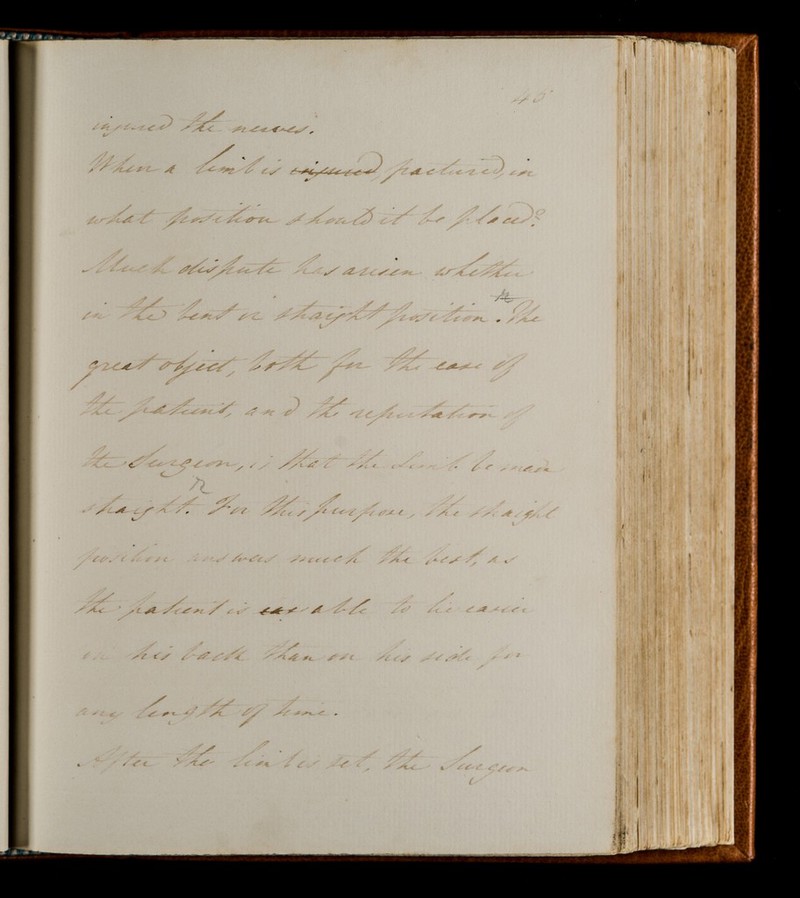 45
injured the nerves.
When a limb is injured, fractured, in
what position should it be placed?
Much dispute has arisen whether
in the bent or straight position. The
great object, both for the ease of
the patient, and the reputation of
the Surgeon, is that the Limb be made
straight. For this purpose, the straight
position answers much the best, as
the patient is eas able to lie easier
on his back than on his side for
any length of time.
After the limb is set, the Surgeon